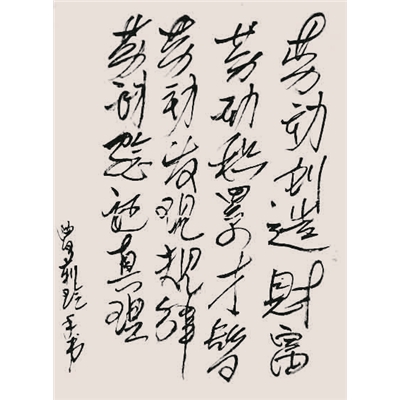 劳动创造財富
劳动积累才智
劳动发现规律
劳动验证真理
手书